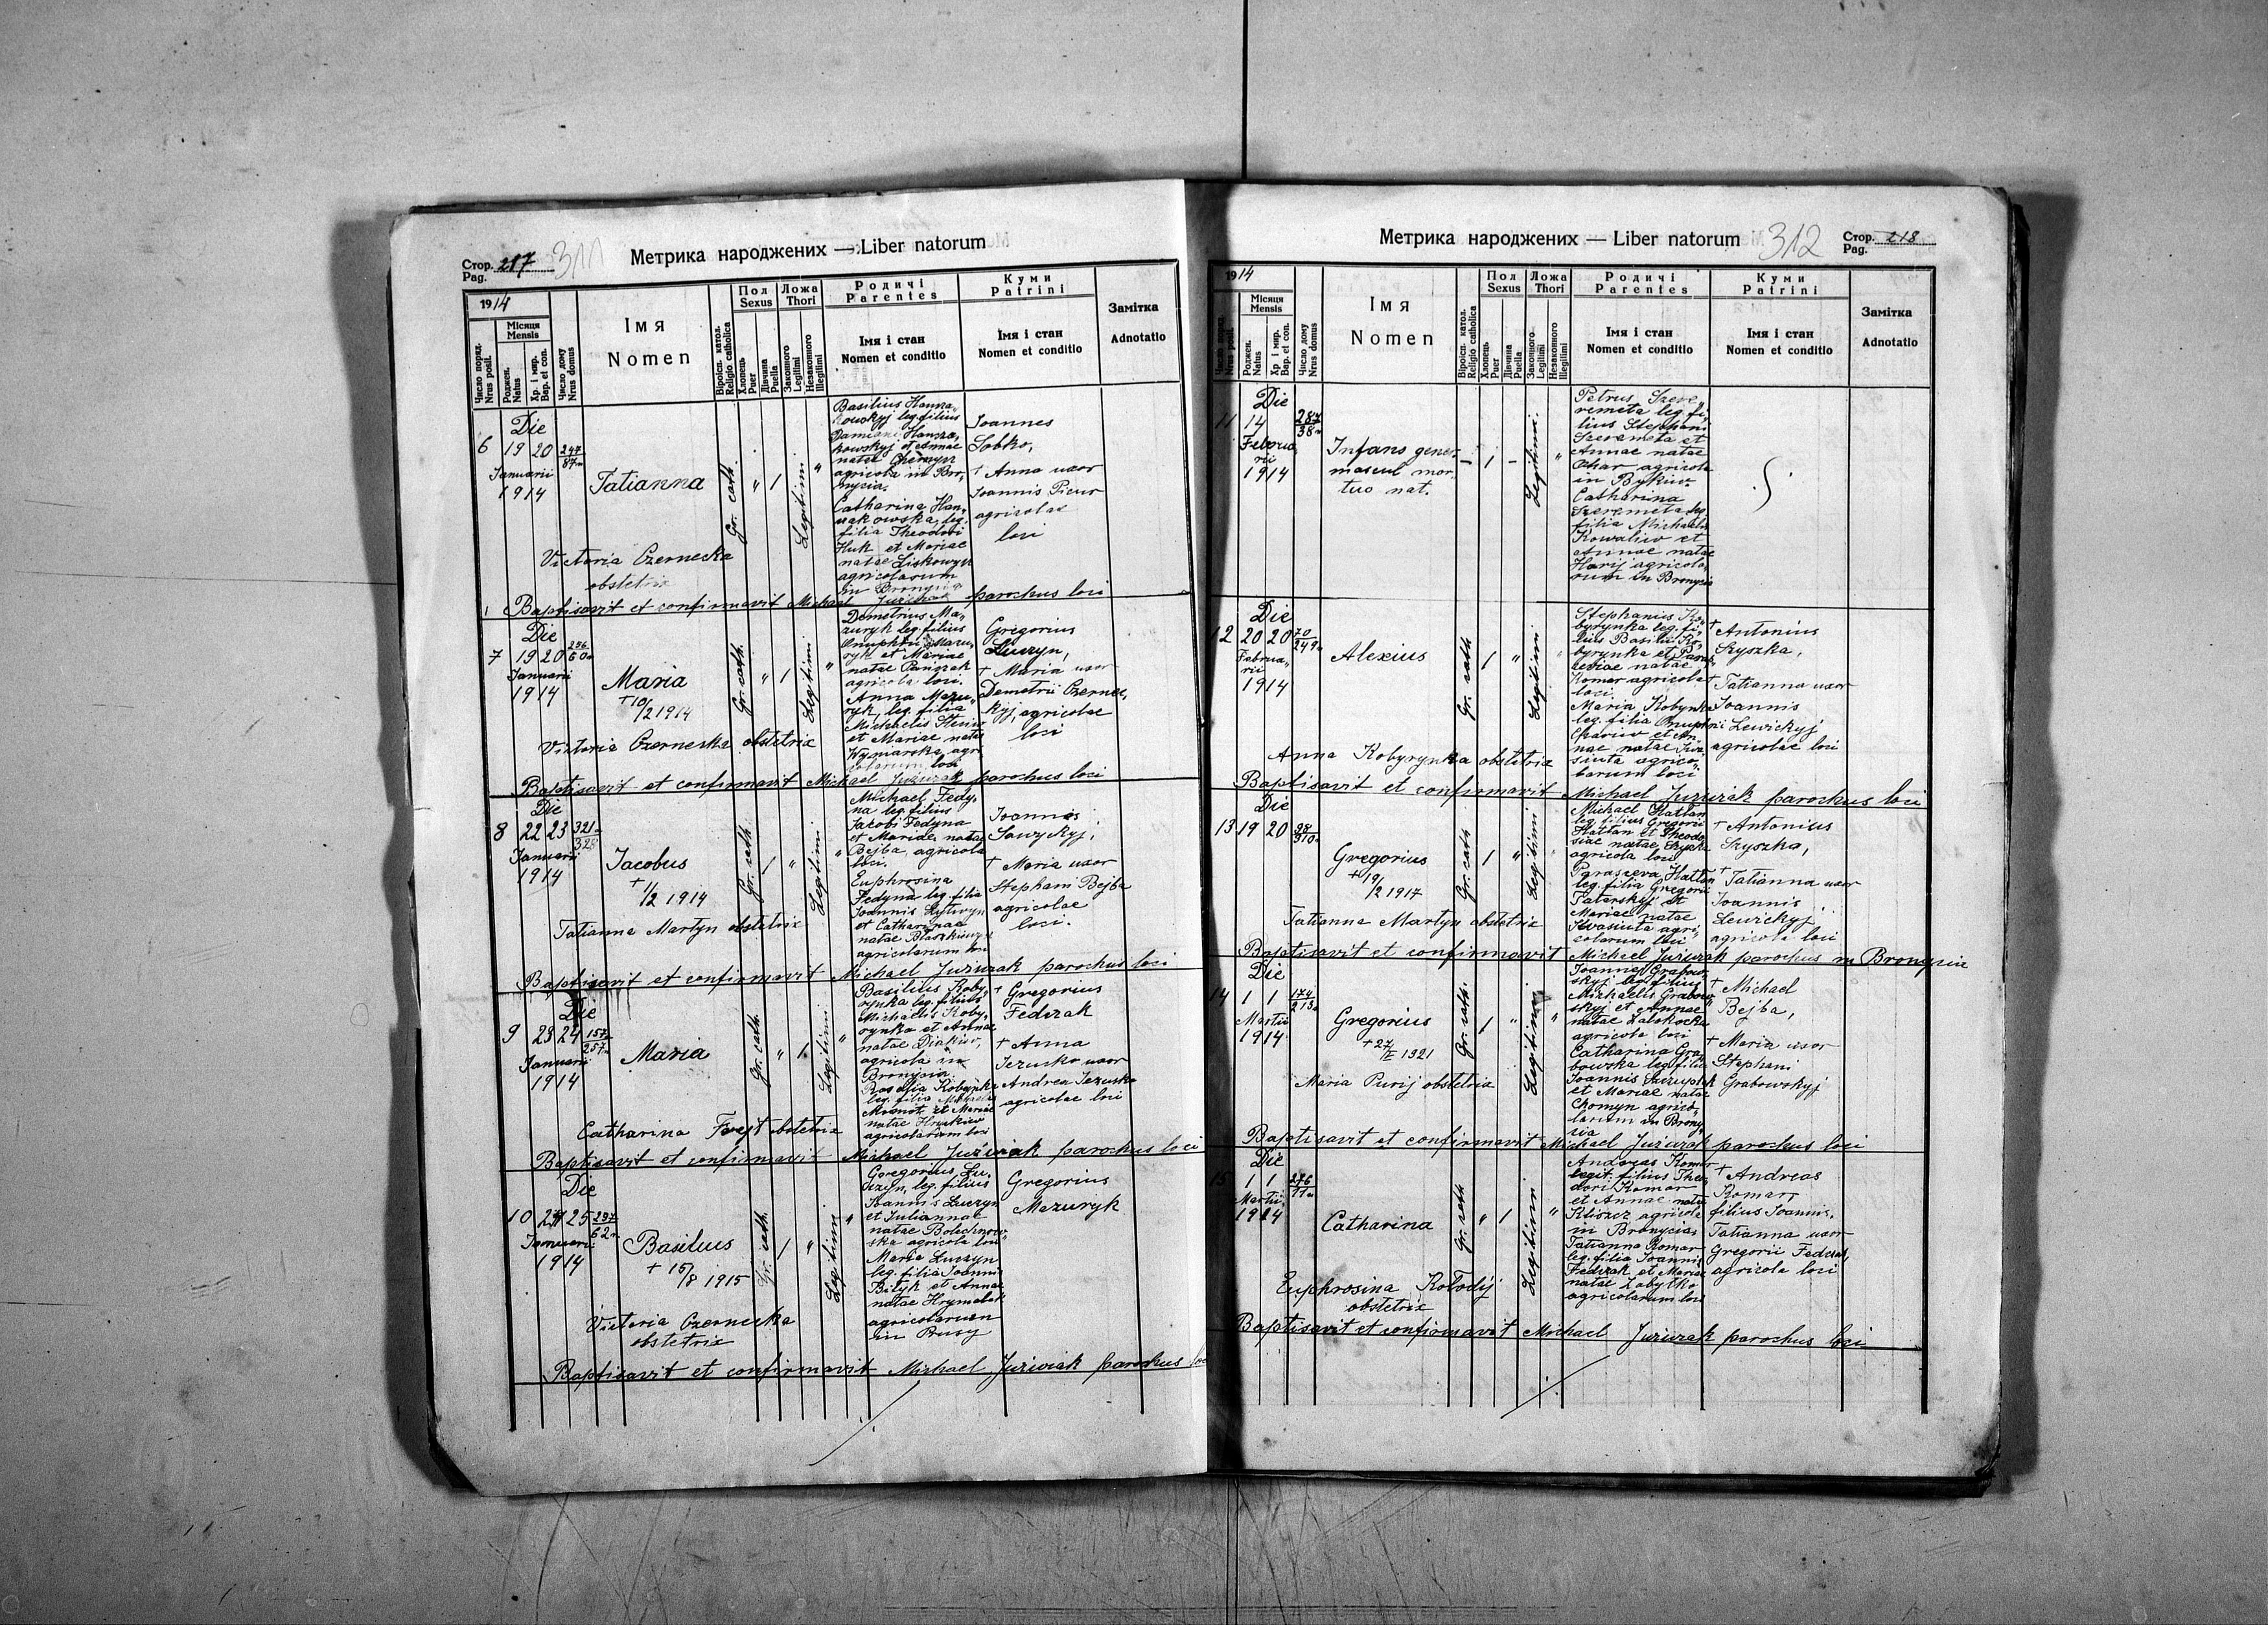 Стор. 217 311
Pag.
Метрика народжених — Liber natorum
1914
Число поряд.
Nrus posit.
Місяця
Mensis
Роджен.
Natus
Хр. і мир.
Bap. et con.
Число дому
Nrus domus
Імя
Nomen
Віроісп. катол.
Religio catholica
Пол
Sexus
Хлопець
Puer
Дівчина
Puella
Ложа
Thori
Законного
Legitimi
Незаконного
Illegitimi
Родичі
Parentes
Імя і стан
Nomen et conditio
Куми
Patrini
Імя і стан
Nomen et conditio
Замітка
Adnotatio
Die
6 19 20 247
87
Januarii
1914
Tatianna
Gr. cath.
" 1
Legitimi "
Basilius Hanna„
kowskyj leg. filius
Damiani
kowskyj et Annae
natae Chomyn
agricola in Bro„
nycia.
Catharina Han„
czakowska, leg.
filia Theodori
Huk et Mariae
natae Liskowyn
agricolarum
in Bronycia
Joannes
Sobko,
† Anna uxor
Joannis Picur
agricolae
loci
Victoria Czernecka
obstetrix
Baptisavit et confirmavit Michael Juziwzak parochus loci
Die
7 19 20 236
60
Januarii
1914
Maria
† 10/2 1914
Gr. cath.
" 1
Legitimi "
Demetrius Ma„
zuryk leg. filius
Onuphrii Mazu„
ryk et Mariae
natae
agricola loci.
Anna Mazu„
ryk, leg. filia
Michaelis
et Mariae natae
Wyniarska, agri
colarum loci
Gregorius
Luczyn,
† Maria uxor
Demetrii Czernec„
kyj, agricolae
loci
Victoria Czernecka obstetrix
Baptisavit et confirmavit Michael Juziwzak parochus loci
Die
8 22 23 321
328
Januarii
1914
Jacobus
† 1/2 1914
Gr. cath.
1 "
Legitimi "
Michael Fedy„
na leg. filius
Jacobi Fedyna
et Mariae, natae
Bejba, agricola
loci.
Euphrosina
Fedyna leg. filia
Joannis Lytwyn
et Catharinae
natae
agricolarum loci
Joannes
Sawyckyj,
† Maria uxor
Stephani Bejba
agricolae
loci.
Tatianna Martyn obstetrix
Baptisavit et confirmavit Michael Juziwzak parochus loci
Die
9 23 24 157
257
Januarii
1914
Maria
Gr. cath.
" 1
Legitimi "
Basilius Koby„
rynka leg. filius
Michaelis Koby„
rynka et Annae
natae Diakiw,
agricola in
Bronycia.
Rosalia Kobyrynka
leg. filia
et Mariae
natae
agricolarum loci
† Gregorius
Fedczak
† Anna
Jezusko uxor
Andrea Jezusko
agricolae loci
Catharina obstetrix
Baptisavit et confirmavit Michael Juziwzak parochus loci
Die
10 24 25 237
62
Januarii
1914
Basilius
† 15/8 1915
Gr. cath.
1 "
Legitimi "
Gregorius Lu„
czyn, leg. filius
Joannis Luczyn
et Juliannae
natae Bolechnow„
ska agricola loci
Maria Luczyn
leg. filia Joannis
Bilyk et Annae
natae Hrymalak
agricolarum
in Busy
Gregorius
Mazuryk
Victoria Czernecka
obstetrix
Baptisavit et confirmavit Michael Juziwzak parochus loci
Метрика народжених — Liber natorum
312 Стор. 218
Pag.
1914
Число поряд.
Nrus posit.
Місяця
Mensis
Роджен.
Natus
Хр. і мир.
Bap. et con.
Число дому
Nrus domus
Імя
Nomen
Віроісп. катол.
Religio catholica
Пол
Sexus
Хлопець
Puer
Дівчина
Puella
Ложа
Thori
Законного
Legitimi
Незаконного
Illegitimi
Родичі
Parentes
Імя і стан
Nomen et conditio
Куми
Patrini
Імя і стан
Nomen et conditio
Замітка
Adnotatio
Die
11 14 287
38
Februa
rii
1914
Infans gener.
mascul. mor„
tuo nat.
— 1 —
Legitimi "
Petrus Szere„
remeta leg. fi„
lius Stephani
Szeremeta et
Annae natae
Ochar agricola
in Bykiw.
Catharina
Szeremeta leg.
filia Michaelis
Kowaliw et
Annae natae
Harij agricola„
rum in Bronycia
Die
12 20 20 70
249
Februa„
rii
1914
Alexius
Gr. cath.
1 "
Legitimi
Stephanus Ko„
byrynka leg. fi„
lius Basilii Ko„
byrynka et Paras„
ceviae natae
Komar agricola
loci.
Maria Kobyrynka
leg. filia Onuphrii
et An„
nae natae
agrico„
larum loci
† Antonius
Szyszka,
† Tatianna uxor
Joannis
Lewickyj
agricolae loci
Anna Kobyrynka obstetrix
Baptisavit et confirmavit Michael Juziwzak parochus loci
Die
13 19 20 38
310
Gregorius
† 19/2 1917
Gr. cath
1 "
Legitimi
Michael Hattan
leg. filius Gregorii
Hattan et Theodo„
siae natae
agricola loci
Parasceva Hattan
leg. filia Gregorii
Tatarskyj et
Mariae natae
Kwasiuta agri„
colarum loci
† Antonius
Szyszka,
† Tatianna uxor
Joannis
Lewickyj
agricola loci
Tatianna Martyn obstetrix
Baptisavit et confirmavit Michael Juziwzak parochus in Bronycia
Die
14 1 1 174
213
Martii
1914
Gregorius
† 27/I 1921
Gr. cath.
1 "
Legitima "
Joannes Grabow„
skyj leg. filius
Michaelis Grabow„
skyj et Annae
natae Zalokocka
agricola loci
Catharina Gra„
bowska leg. filia
Joannis
et Mariae natae
Chomyn agrico„
larum in Brony„
cia
† Michael
Bejba,
† Maria uxor
Stephani
Grabowskyj
Maria Purij obstetrix
Baptisavit et confirmavit Michael Juziwzak parochus loci
Die
15 1 1 276
71
Martii
1914
Catharina
Gr. cath
" 1
Legitimi "
Andreas Komar
legit. filius Theo„
dori Komar
et Annae natae
Kliszcz agricola
in Bronycia,
Tatianna Komar
leg. filia Joannis
Fedczak et Mariae
natae Zabytko
agricolarum loci
† Andreas
Komar,
filius Joannis,
Tatianna uxor
Gregorii Fedczak,
agricola loci
Euphrosina Kołodij
obstetrix
Baptisavit et confirmavit Michael Juziwzak parochus loci